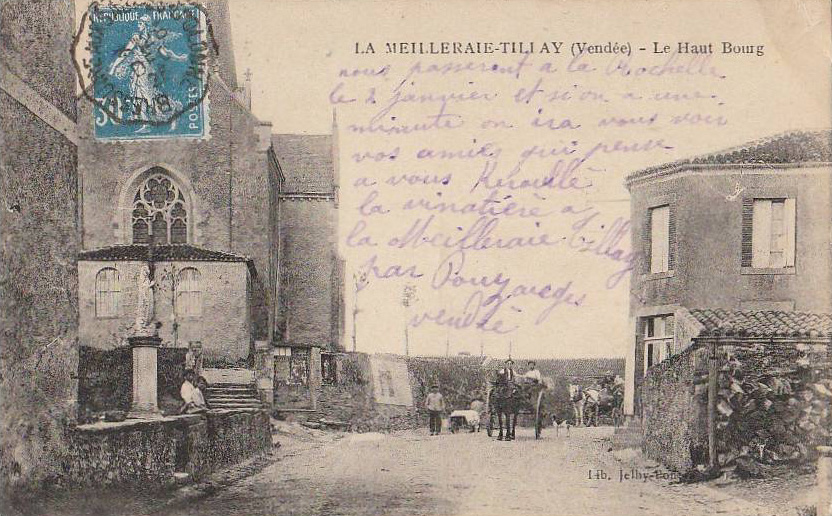 RÉPUBLIQUE FRANÇAISE
POSTES
LA MEILLERAIE-TILLAY (Vendée) - Le Haut Bourg
nous passeront a la Rochelle
le 2 janvier et si on a une
minute on ira vous voir
vos amies qui pense
a vous
la vinatière a
la Meilleraie Tillay
par Pouzauges
vendé
Lib. Jelhy-Pou